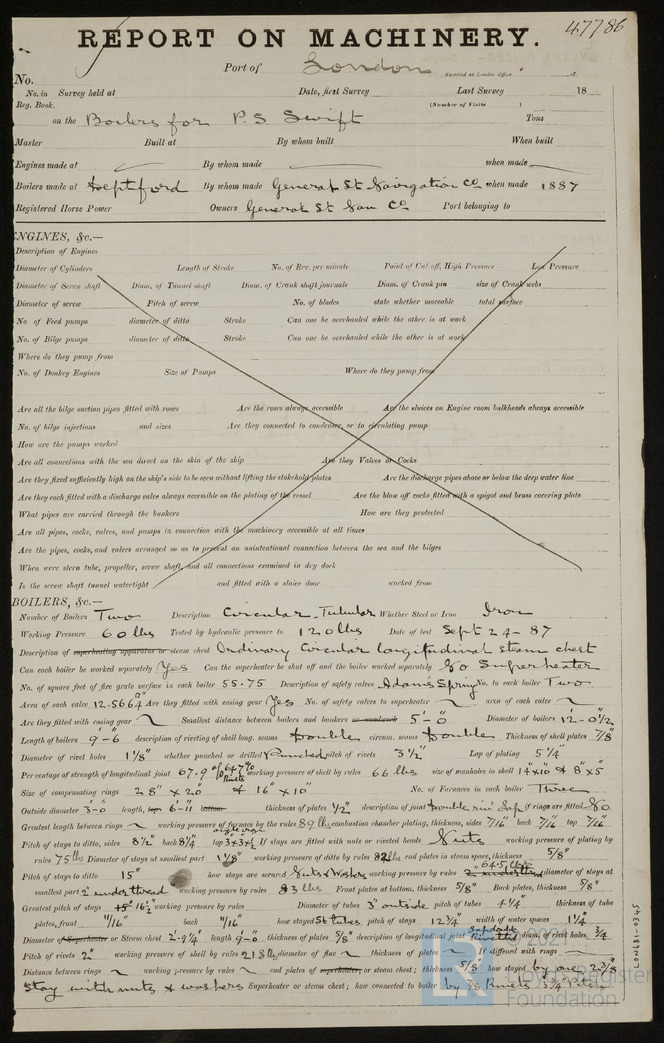 47786
REPORT ON MACHINERY.
No. Port of London Received at London Office 18
No. in Survey held at Date, first Survey Last Survey 18
Reg. Book. (Number of Visits )
on the Boilers for P.S. Swift Tons
Master Built at By whom built When built
Engines made at By whom made when made
Boilers made at Deptford By whom made General St Navigation Co when made 1887
Registered Horse Power Owners General St Nav Co Port belonging to
ENGINES, &c.—
Description of Engines
Diameter of Cylinders Length of Stroke No. of Rev. per minute Point of Cut off, High Pressure Low Pressure
Diameter of Screw shaft Diam. of Tunnel shaft Diam. of Crank shaft journals Diam. of Crank pin size of Crank webs
Diameter of screw Pitch of screw No. of blades state whether moveable total surface
No. of Feed pumps diameter of ditto Stroke Can one be overhauled while the other is at work
No. of Bilge pumps diameter of ditto Stroke Can one be overhauled while the other is at work
Where do they pump from
No. of Donkey Engines Size of Pumps Where do they pump from
Are all the bilge suction pipes fitted with roses Are the roses always accessible Are the sluices on Engine room bulkheads always accessible
No. of bilge injections and sizes Are they connected to condenser, or to circulating pump
How are the pumps worked
Are all connections with the sea direct on the skin of the ship Are they Valves or Cocks
Are they fixed sufficiently high on the ship's side to be seen without lifting the stokehold plates Are the discharge pipes above or below the deep water line
Are they each fitted with a discharge valve always accessible on the plating of the vessel Are the blow off cocks fitted with a spigot and brass covering plate
What pipes are carried through the bunkers How are they protected
Are all pipes, cocks, valves, and pumps in connection with the machinery accessible at all times
Are the pipes, cocks, and valves arranged so as to prevent an unintentional connection between the sea and the bilges
When were stern tube, propeller, screw shaft, and all connections examined in dry dock
Is the screw shaft tunnel watertight and fitted with a sluice door worked from
BOILERS, &c.—
Number of Boilers Two Description Circular Tubular Whether Steel or Iron Iron
Working Pressure 60 lbs Tested by hydraulic pressure to 120 lbs Date of test Sept 24 - 87
Description of superheating apparatus or steam chest Ordinary Circular longitudinal steam chest
Can each boiler be worked separately Yes Can the superheater be shut off and the boiler worked separately No Superheater
No. of square feet of fire grate surface in each boiler 55.75 Description of safety valves Adams Spring No. to each boiler Two
Area of each valve 12.566 Are they fitted with easing gear Yes No. of safety valves to superheater area of each valve
Are they fitted with easing gear Smallest distance between boilers and bunkers or woodwork 5'-0" Diameter of boilers 12'-0½"
Length of boilers 9'-6" description of riveting of shell long. seams Double circum. seams Double Thickness of shell plates 7/8"
Diameter of rivet holes 1 1/8" whether punched or drilled Punched pitch of rivets 3½" Lap of plating 5¼"
Per centage of strength of longitudinal joint 67.9 % 64.7 % Rivets working pressure of shell by rules 66 lbs size of manholes in shell 14"x10" & 8"x5"
Size of compensating rings 28" x 20" & 16" x 10" No. of Furnaces in each boiler Three
Outside diameter 3'-0" length, top 6'-11" bottom thickness of plates ½" description of joint Double riv Lap if rings are fitted No.
Greatest length between rings working pressure of furnace by the rules 89 lbs combustion chamber plating, thickness, sides 7/16" back 7/16 top 7/16
Pitch of stays to ditto, sides 8½" back 8¼" top angle iron 3x3x½ If stays are fitted with nuts or riveted heads Nuts working pressure of plating by
rules 75 lbs Diameter of stays at smallest part 1 1/8" working pressure of ditto by rules 82 lbs end plates in steam space, thickness 5/8"
Pitch of stays to ditto 15" how stays are secured Nuts & Washers working pressure by rules 64.5 lbs diameter of stays at
smallest part 2" under thread working pressure by rules 83 lbs Front plates at bottom, thickness 5/8" Back plates, thickness 5/8"
Greatest pitch of stays 16½" working pressure by rules Diameter of tubes 3" outside pitch of tubes 4¼" thickness of tube
plates, front 11/16" back 11/16" how stayed St tubes pitch of stays 12¾" width of water spaces 1¼"
Diameter of Superheater or Steam chest 2'-9¼" length 9'-0" thickness of plates 5/8" description of longitudinal joint Lap diam. of rivet holes 3/4
Pitch of rivets 2" working pressure of shell by rules 218 lbs diameter of flue thickness of plates If stiffened with rings
Distance between rings working pressure by rules end plates of superheater, or steam chest; thickness 5/8" how stayed by one 2 3/8"
stay with nuts & washers Superheater or steam chest; how connected to boiler by 7/8 Rivets 3¼ Pitch
LON681-0345
© 2021
Lloyd's Register
Foundation